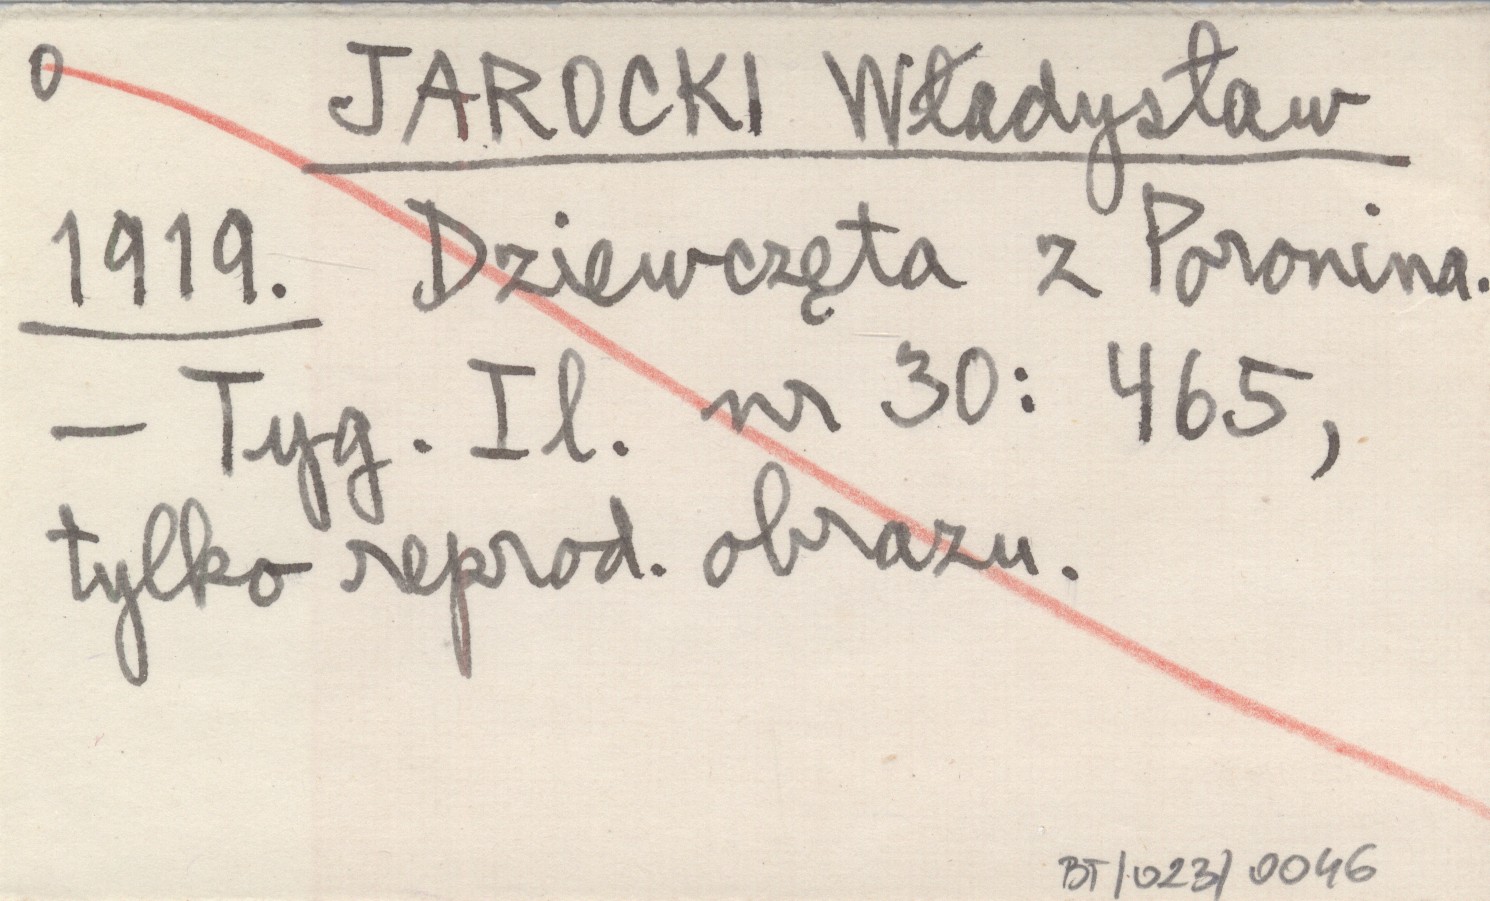 0 JAROCKI Władysław
1919. Dziewczęta z Poronina.
– Tyg. Il. nr 30: 465,
tylko reprod. obrazu.
BT/023/0046